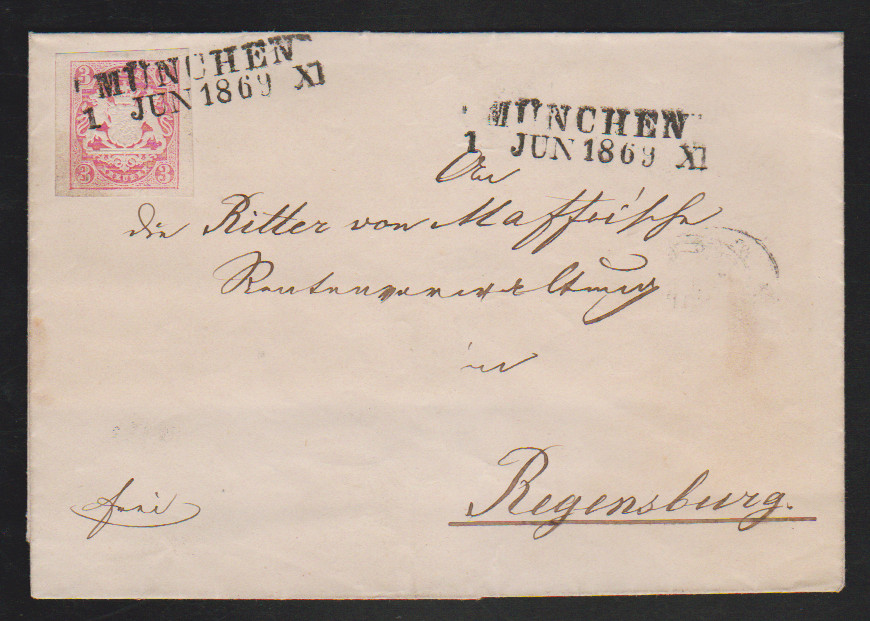 3
3 3
MÜNCHEN
1 JUN 1869 XI
MÜNCHEN
1 JUN 1869 XI
An
die Ritter von Maffei'sche
Rentenverwaltung
in
Regensburg.
frei